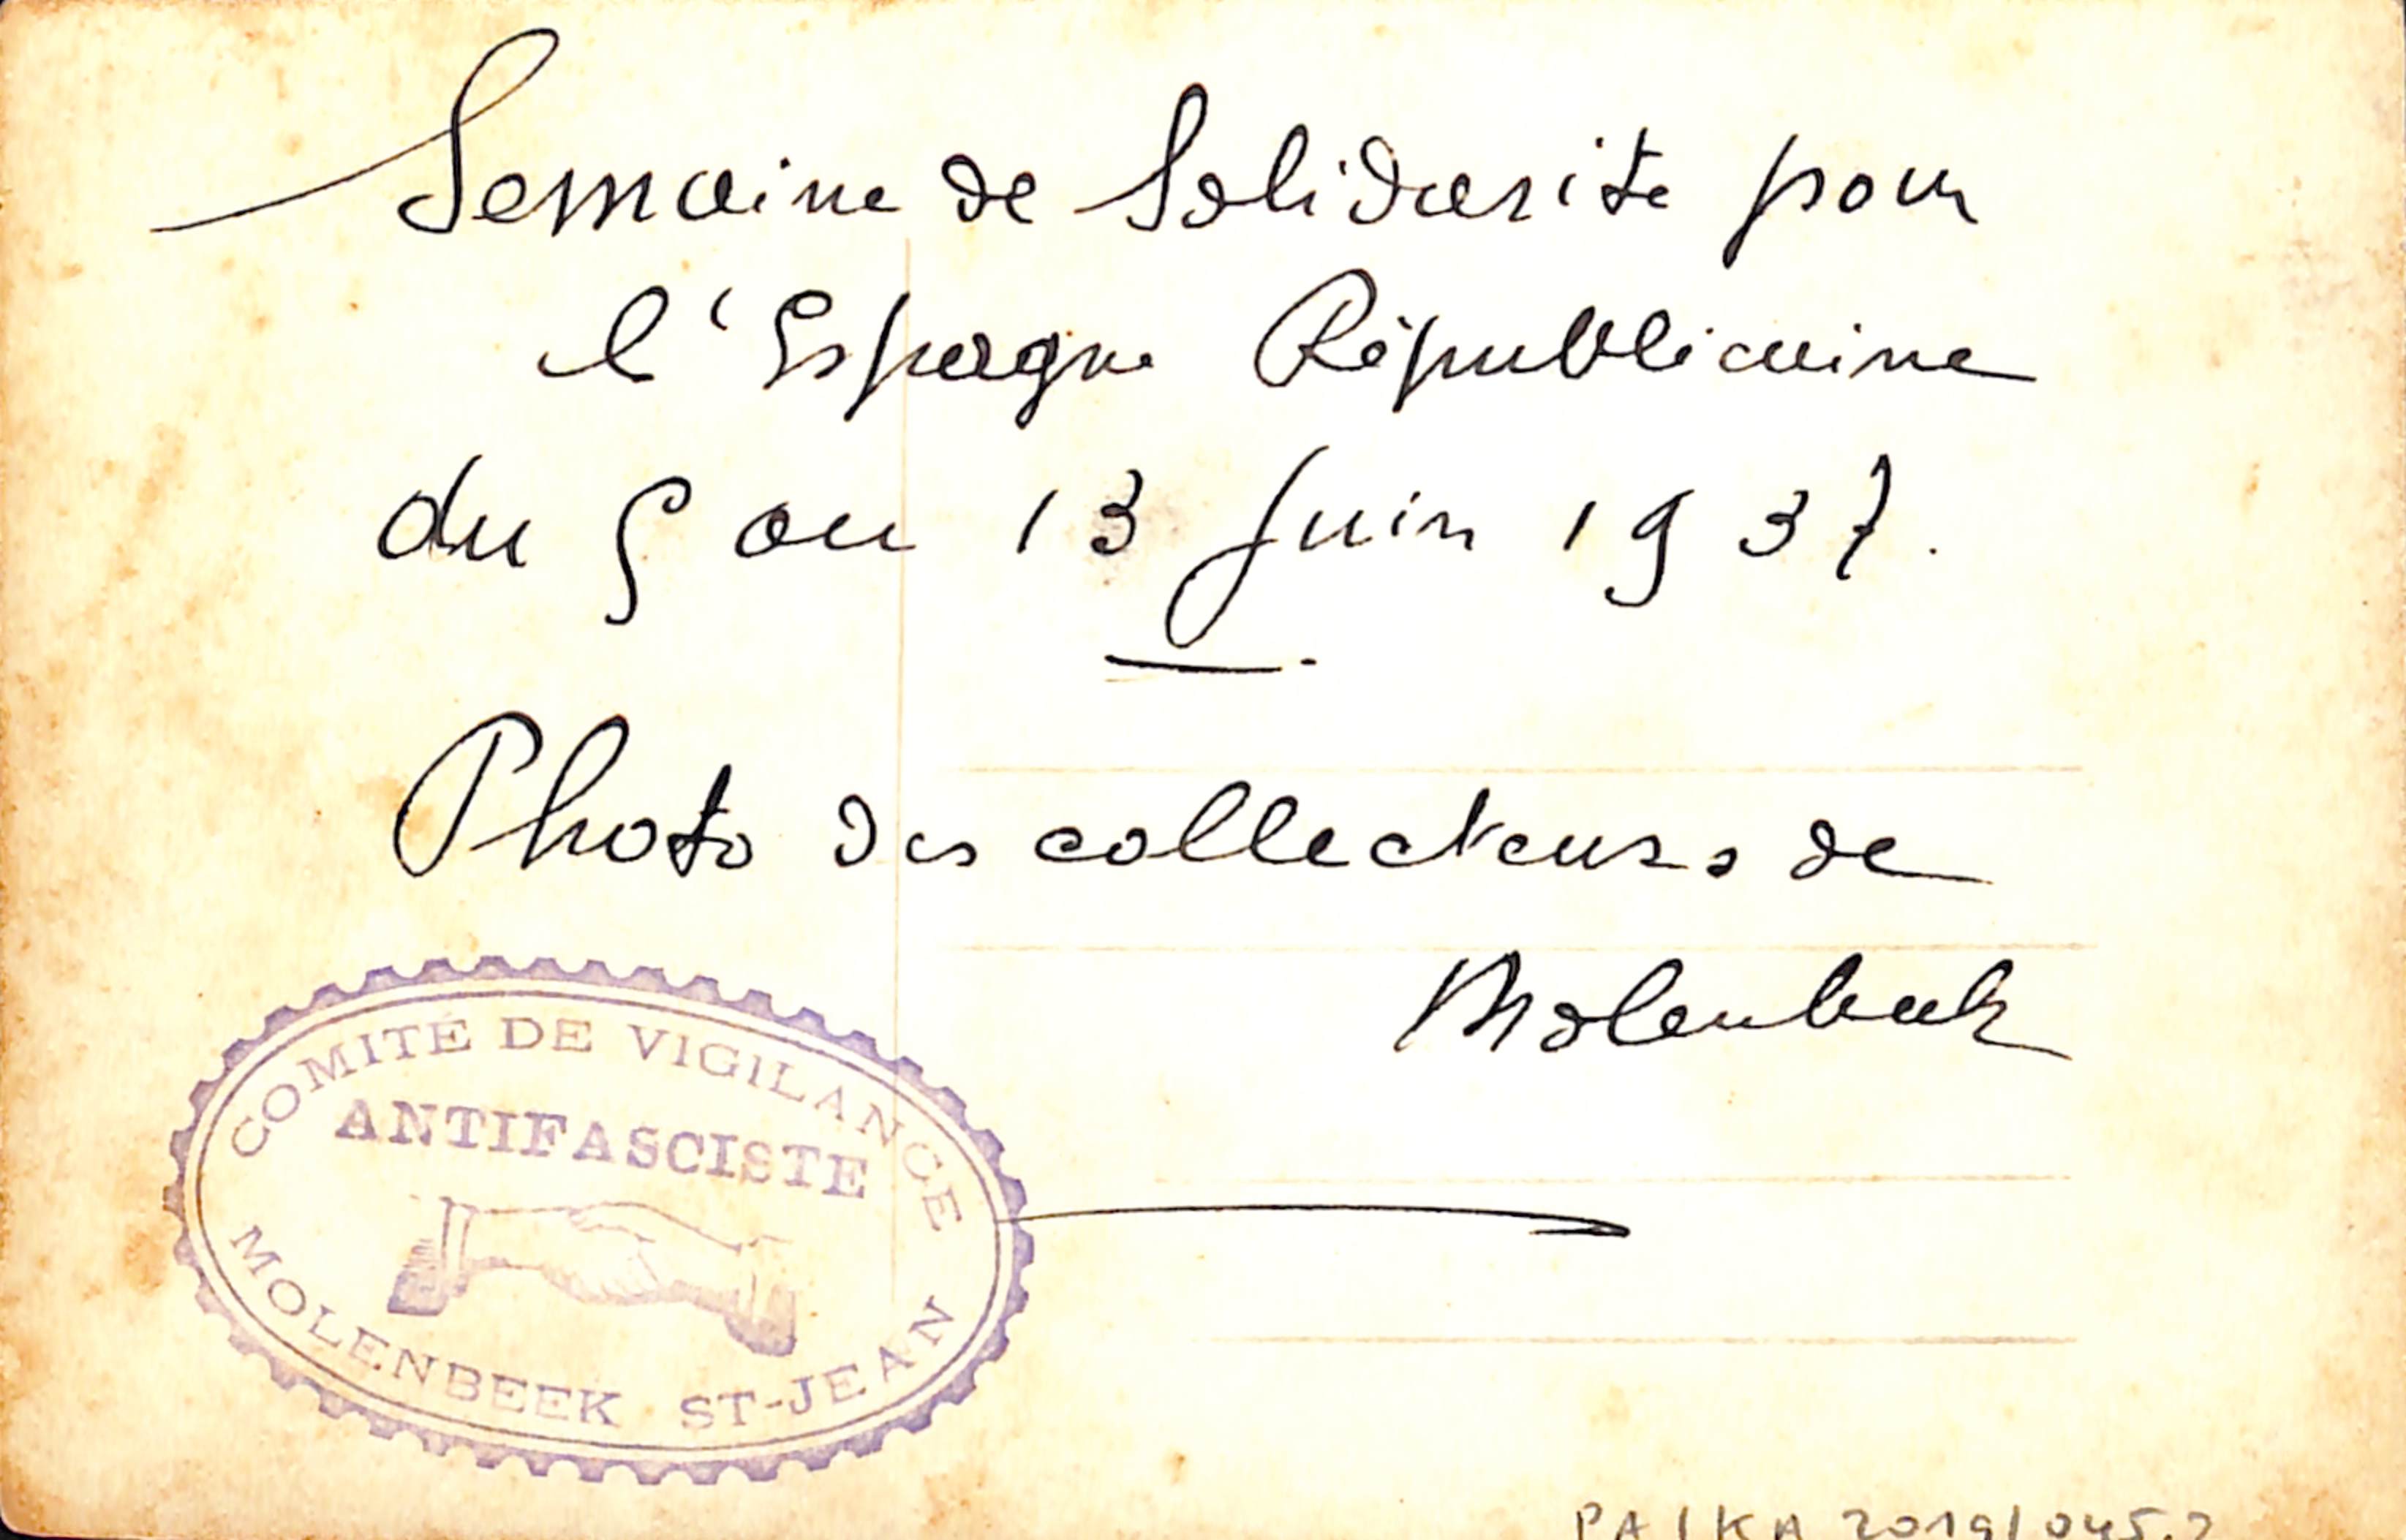 Semaine de Solidarite pour
l'Espagne Républicaine
du 5 au 13 Juin 1937.
Photo des collecteurs de
Molenbeek
COMITÉ DE VIGILANCE
ANTIFASCISTE
MOLENBEEK ST-JEAN
PA/KA 2019/045.2